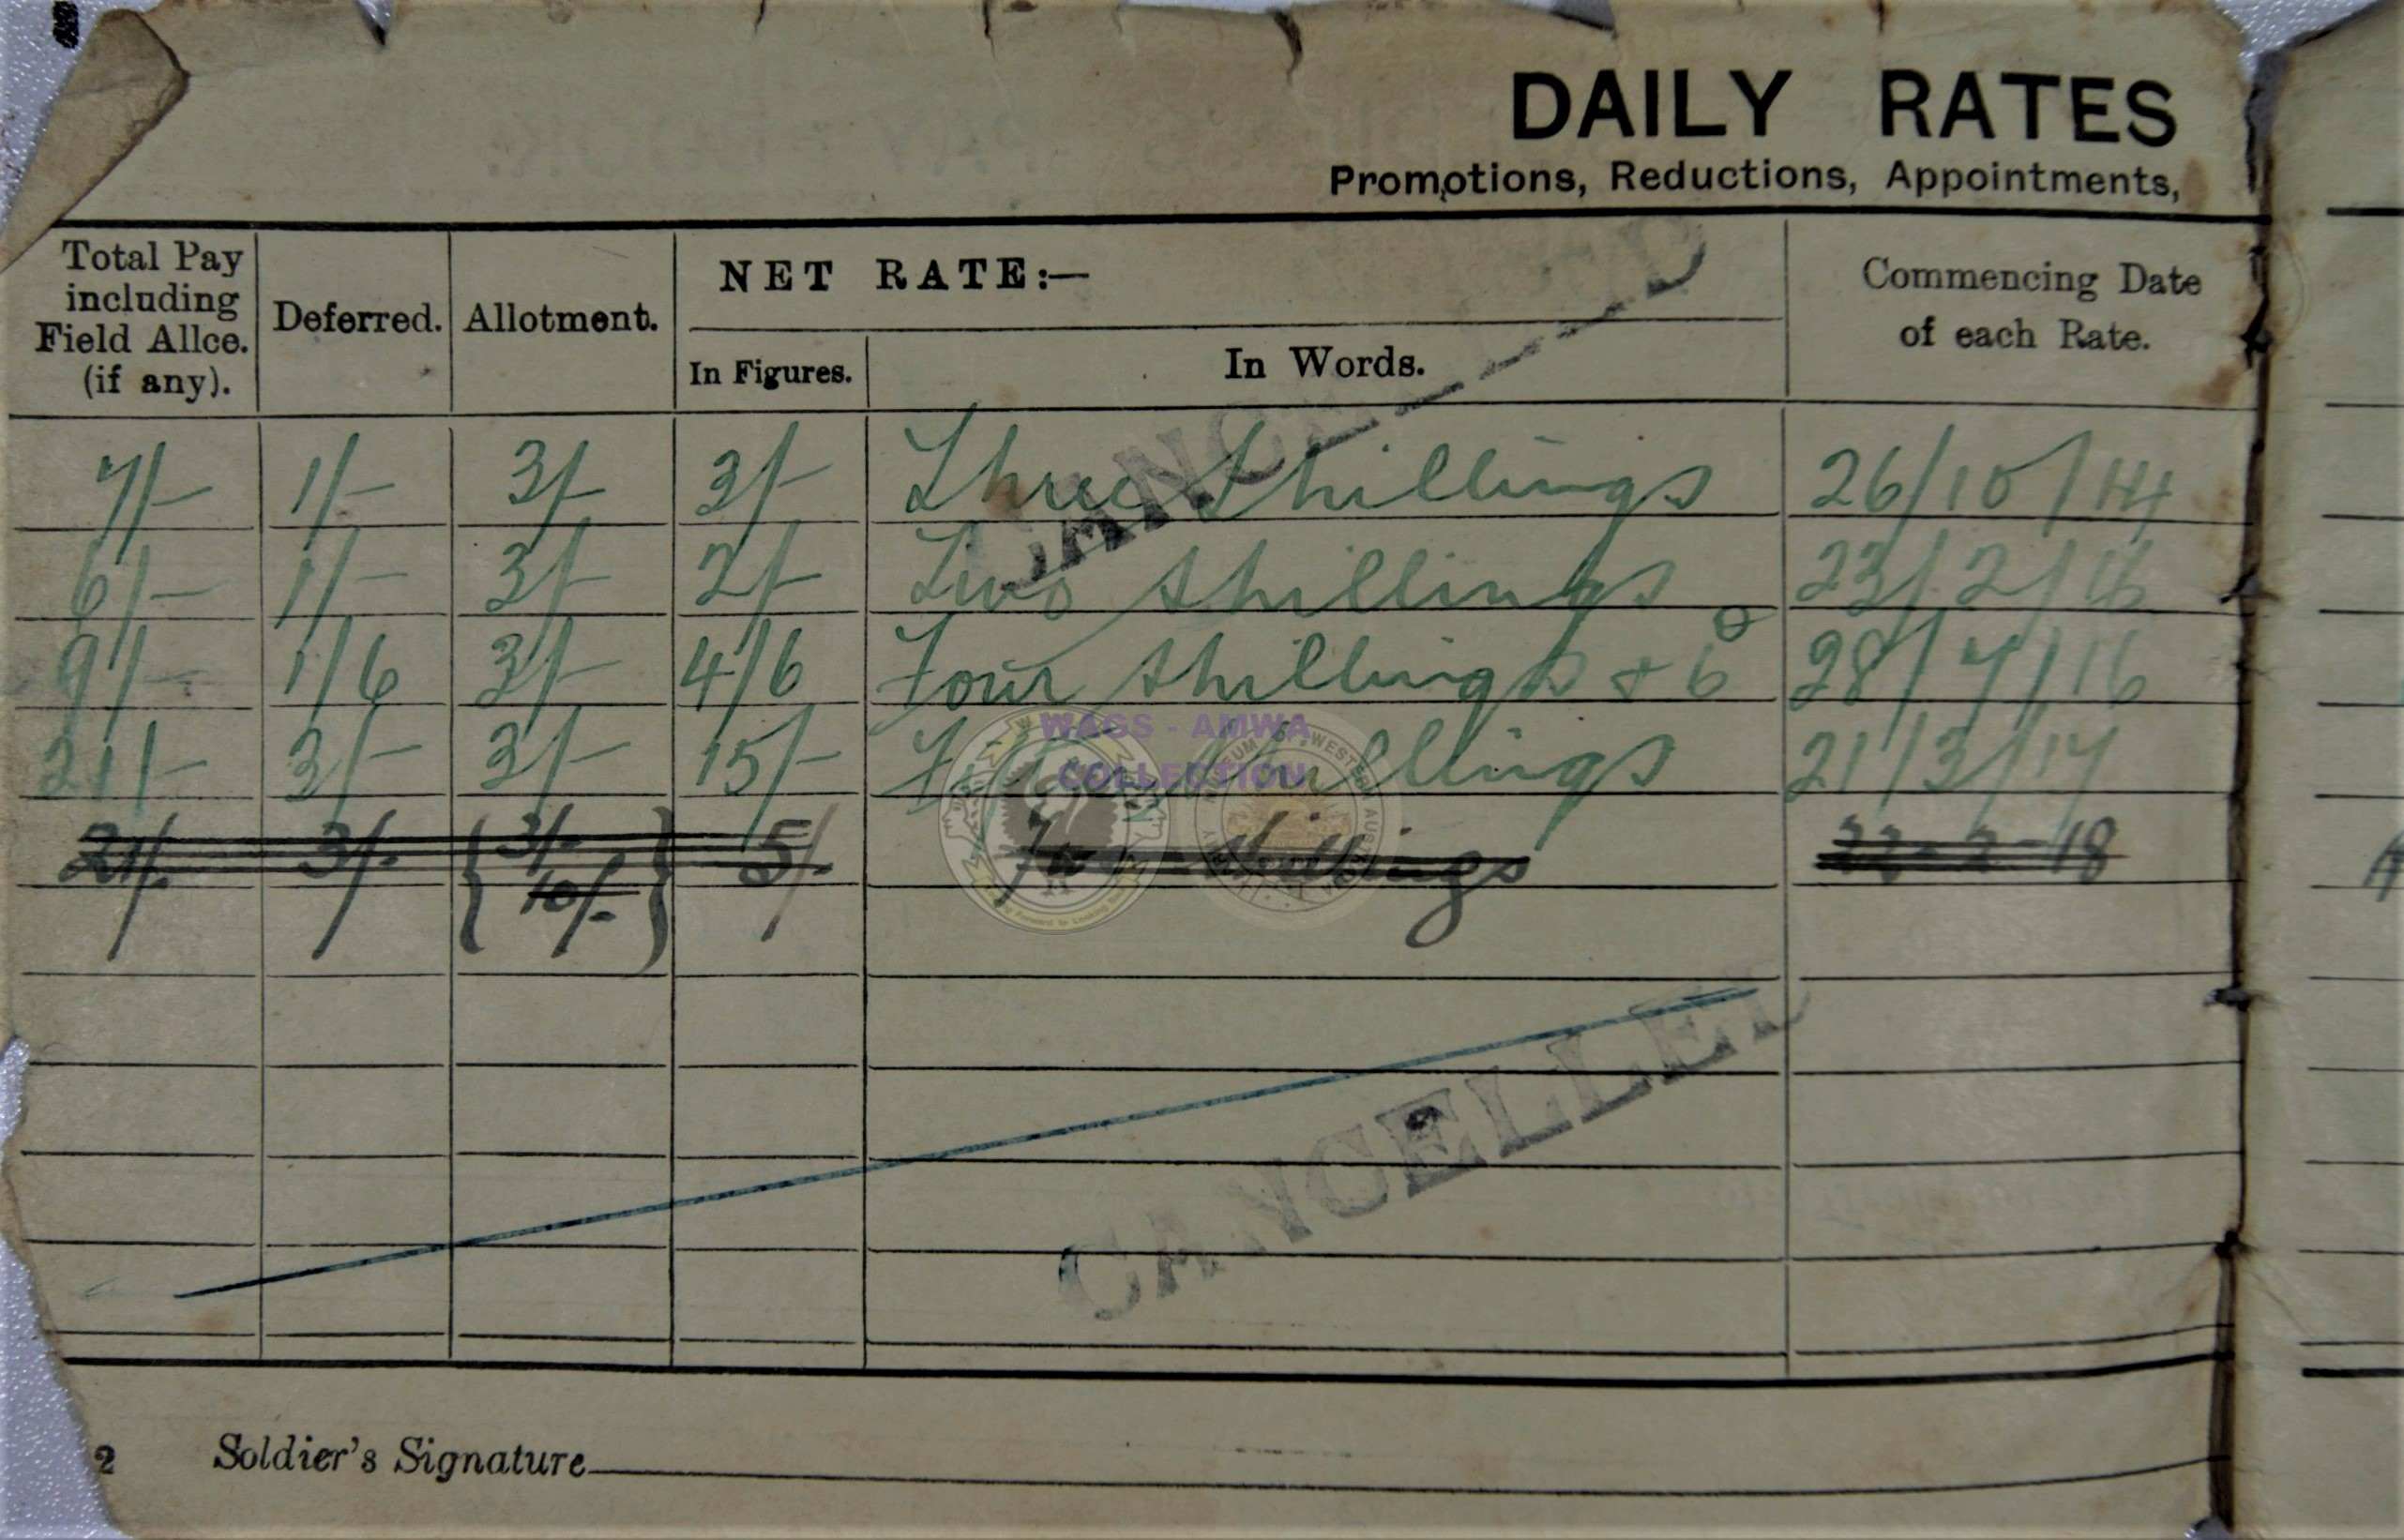 DAILY RATES
Promotions, Reductions, Appointments,
Total Pay including Field Allce. (if any).
Deferred.
Allotment.
NET RATE:—
In Figures.
In Words.
Commencing Date of each Rate.
7/- 1/- 3/- 3/- Three Shillings 26/10/14
6/- 1/- 3/- 2/- Two shillings 23/2/16
9/- 1/6 3/- 4/6 Four shillings + 6ᵈ 28/7/16
21/- 3/- 3/- 15/- shillings 21/3/17
21/- 3/- { 3/- 10/- } 5/- shillings 22-2-18
CANCELLED
WAGS - AMWA
COLLECTION
CANCELLED
2 Soldier's Signature